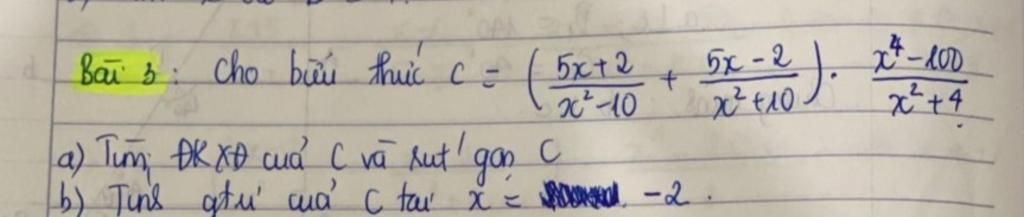 Bài 3 : Cho biểu thức C = ( (5x+2)/(x²-10) + (5x-2)/(x²+10) ) . (x⁴-100)/(x²+4)
a) Tìm ĐKXĐ của C và rút gọn C
b) Tính gtrị của C tại x = -2 .